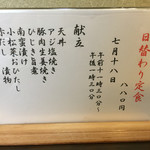 日替わり定食
八八〇円
七月十八日
午前十一時三〇分～
午後一時三〇分
献立
天丼
アジ塩焼き
豚肉生姜焼き
ひじき旨煮
南蛮漬け
小松菜おひたし
赤だし
漬物